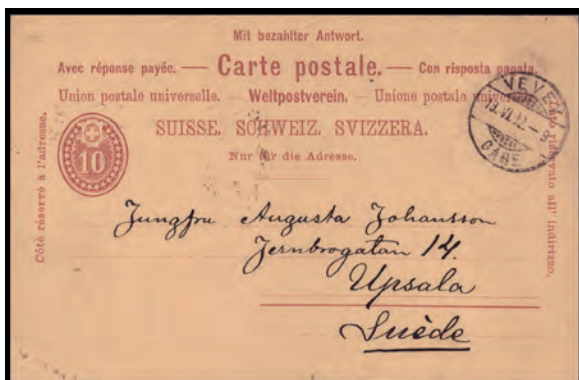 Mit bezahlter Antwort.
Avec réponse payée. — Carte postale. — Con risposta pagata.
Union postale universelle. – Weltpostverein. – Unione postale universale.
SUISSE. SCHWEIZ. SVIZZERA.
Nur für die Adresse.
Côté réservé à l'adresse.
10
VEVEY
GARE
Lato riservato all' indirizzo.
Jungfru Augusta Johansson
Jernbrogatan 14.
Upsala
Suède